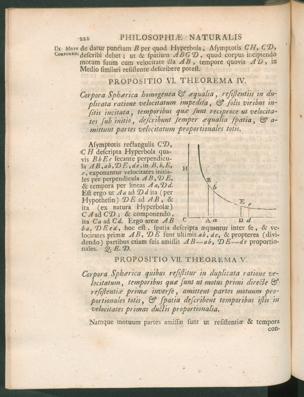 222 PHILOSOPHIÆ NATURALIS
De Motu
Corporum
de datur punctum B per quod Hyperbola, Asymptotis CH, CD,
describi debet; ut & spatium ABGD, quod corpus incipiendo
motum suum cum velocitate illa AB, tempore quovis AD, in
Medio similari resistente describere potest.
PROPOSITIO VI. THEOREMA IV.
Corpora Sphærica homogenea & æqualia, resistentiis in du-
plicata ratione velocitatum impedita, & solis viribus in-
sitis incitata, temporibus quæ sunt reciproce ut velocita-
tes sub initio, describunt semper æqualia spatia, & a-
mittunt partes velocitatum proportionales totis.
Asymptotis rectangulis CD,
CH descripta Hyperbola qua-
vis BbEe secante perpendicu-
la AB, ab, DE, de, in B, b, E,
e, exponantur velocitates initia-
les per perpendicula AB, DE,
& tempora per lineas Aa, Dd.
Est ergo ut Aa ad Dd ita (per
Hypothesin) DE ad AB, &
ita (ex natura Hyperbolæ)
CA ad CD; & componendo,
ita Ca ad Cd. Ergo areæ AB
ba, DEed, hoc est, spatia descripta æquantur inter se, & ve-
locitates primæ AB, DE sunt ultimis ab, de, & propterea (divi-
dendo) partibus etiam suis amissis AB—ab, DE—de proportio-
nales. Q. E. D.
H
B
b
E
e
C
A a
D
d
PROPOSITIO VII. THEOREMA V.
Corpora Sphærica quibus resistitur in duplicata ratione ve-
locitatum, temporibus quæ sunt ut motus primi directe &
resistentiæ primæ inverse, amittent partes motuum pro-
portionales totis, & spatia describent temporibus istis in
velocitates primas ductis proportionalia.
Namque motuum partes amissæ sunt ut resistentiæ & tempora
con-